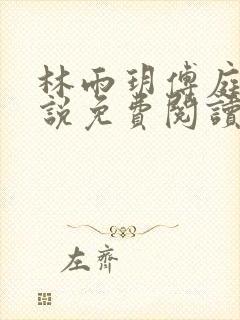 林雨玥傅庭
說免費閱讀
左齊